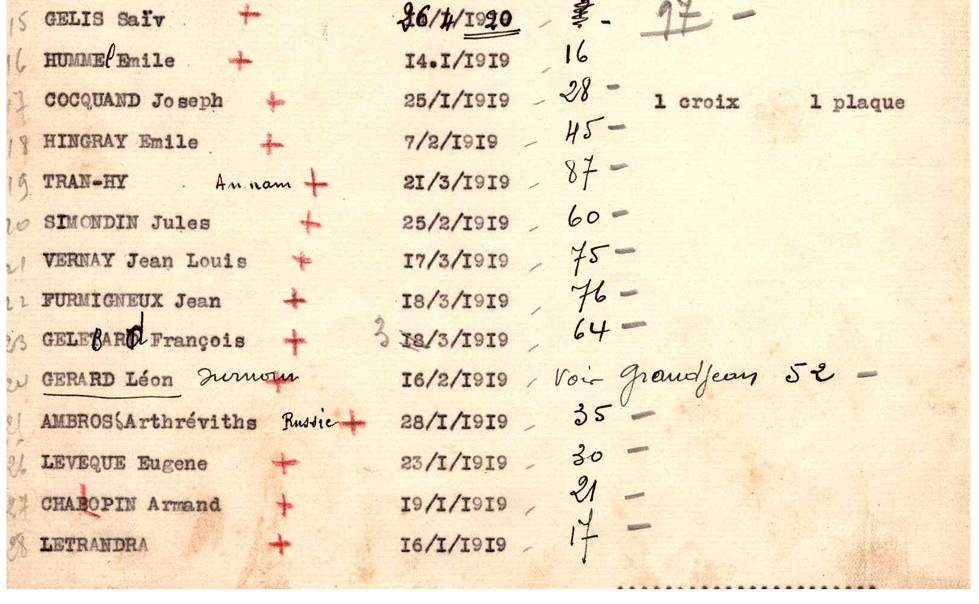 15 GELIS Saïv + 26/4/1920 - 97 -
16 HUMMEl Emile + 14.I/I9I9 16
17 COCQUAND Joseph + 25/I/I9I9 28 - 1 croix 1 plaque
18 HINGRAY Emile + 7/2/I9I9 45 -
19 TRAN-HY Annam + 2I/3/I9I9 87 -
20 SIMONDIN Jules + 25/2/I9I9 60 -
21 VERNAY Jean Louis + I7/3/I9I9 75 -
22 FURMIGNEUX Jean + I8/3/I9I9 76 -
23 GELEBARd François + 3 I8/3/I9I9 64 -
GERARD Léon + I6/2/I9I9 Voir grandjean 52 -
25 AMBROS Arthréviths Russie + 28/I/I9I9 35 -
26 LEVEQUE Eugene + 23/I/I9I9 30 -
27 CHABOPIN Armand + I9/I/I9I9 21 -
28 LETRANDRA + I6/I/I9I9 17 -